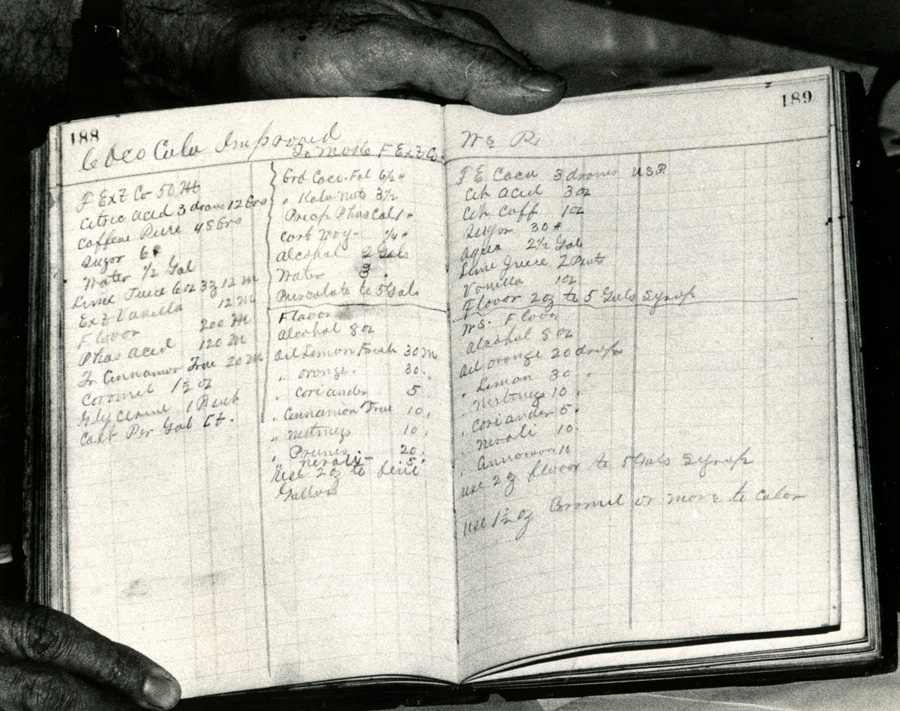 188
Coco Cola Improved
F Ext Co 50 M
Citric Acid 3 drams 12 Grs
Caffene Pure 48 Grs
Sugor 6
Water ½ Gal
Lime Juice 6 oz 3 12 M
Ext Vanilla 12 M
Flovor 200 M
Phos Acid 120 M
Tr Cinnamon True 20 M
Coromel 1½ oz
Glycerine 1
Cost Per Gal
To Make F Ext Co.
Grd Coco
" Kola nuts 3½
Precip Phos
¼
Alcohol 2 Gals
Water 3 "
Percolate to 5 Gals
Flavor
Alcohol 8 oz
Oil Lemon 30 M
" Orange 30 "
" Coriander 5 "
" Cinnamon True 10 "
" Nutmeg 10 "
" 20 "
" Neroli 5 "
Use 2 oz to five
Gallon
189
F E Coca 3 drams USP
Cit Acid 3 oz
Cit Caff 1 oz
Sugor 30 #
Aqua 2½ Gal
Lime Juice 2 Pints
Vanilla 1 oz
Flovor 2 oz to 5 Gals Syrup
Flovor
Alcohol 8 oz
Oil Orange 20 drops
" Lemon 30 "
" Nutmeg 10 "
" Coriander 5 "
" Neroli 10 "
" 10
Use 2 oz flovor to 5 Gals Syrup
Use 1½ oz or more to color